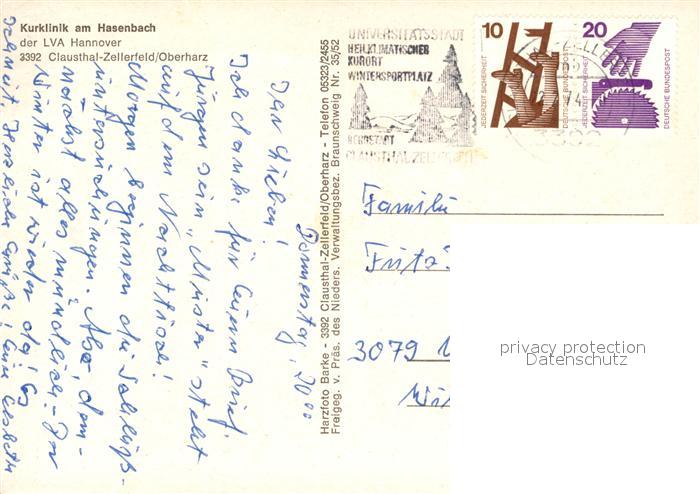 Kurklinik am Hasenbach
der LVA Hannover
3392 Clausthal-Zellerfeld/Oberharz
Donnerstag, 20⁰⁰
Ihr Lieben!
Ich danke für Euren Brief.
Jürgen sein „Muster" steht
auf dem Nachttisch!
Morgen beginnen die Schluß-
untersuchungen. Also, dem-
nächst alles mündlich. - Der
Winter ist wieder da, es
schneit. Herzliche Grüße! Eure Lisbeth
Harzfoto Barke - 3392 Clausthal-Zellerfeld/Oberharz - Telefon 05323/2455
Freigeg. v. Präs. des Nieders. Verwaltungsbez. Braunschweig Nr. 35/52
UNIVERSITÄTSSTADT
HEILKLIMATISCHER
KURORT
WINTERSPORTPLATZ
BERGSTADT
CLAUSTHAL-ZELLERFELD
10
JEDERZEIT SICHERHEIT
DEUTSCHE BUNDESPOST
20
JEDERZEIT SICHERHEIT
DEUTSCHE BUNDESPOST
3392
Familie
Fritz
3079
privacy protection
Datenschutz